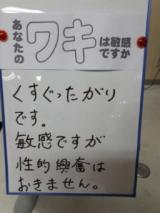 あなたの ワキ は敏感ですか
くすぐったがり
です。
敏感ですが
性的興奮は
おきません。